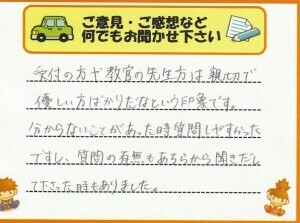 ご意見・ご感想など
何でもお聞かせ下さい
受付の方や教官の先生方は親切で
優しい方ばかりだなという印象です。
分からないことがあった時質問しやすかった
ですし、質問の有無もあちらから聞きだし
て下さった時もありました。